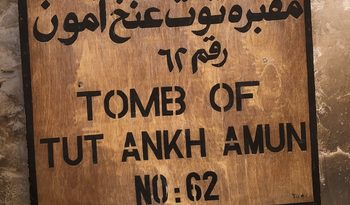 مقبرة توت عنخ آمون
رقم ٦٢
TOMB OF
TUT ANKH AMUN
NO: 62